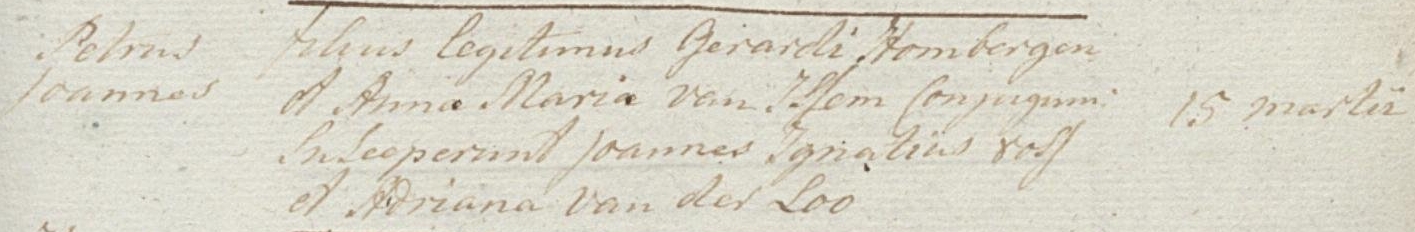 Petrus filius legitimus Gerardi Hombergen
Joannes et Annæ Mariæ van Issem Conjugum 15 martii
Susceperunt Joannes Ignatius
et Adriana van der Loo